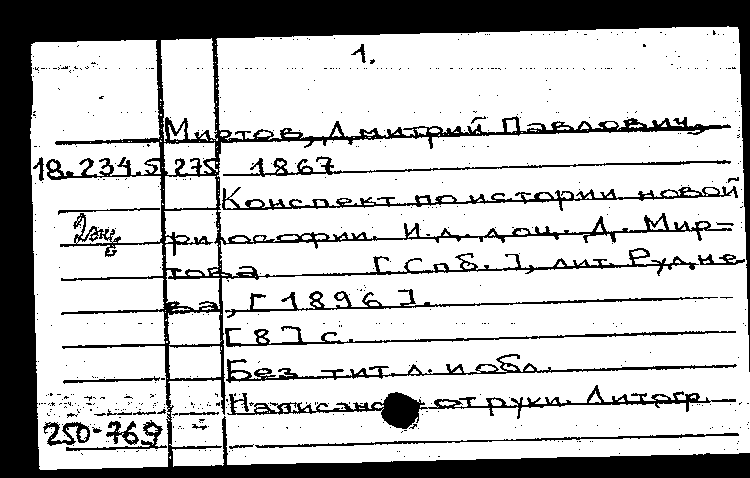 1.
Миртов, Дмитрий Павлович,
18.234.5.275 1867
Конспект по истории новой
2 экз.
философии. И.д. доц. Д. Мир=
това. [Спб.], лит. Рудне
ва, [1896].
[8] с.
Без тит. л. и обл.
Написано от руки. Литогр.
250-769